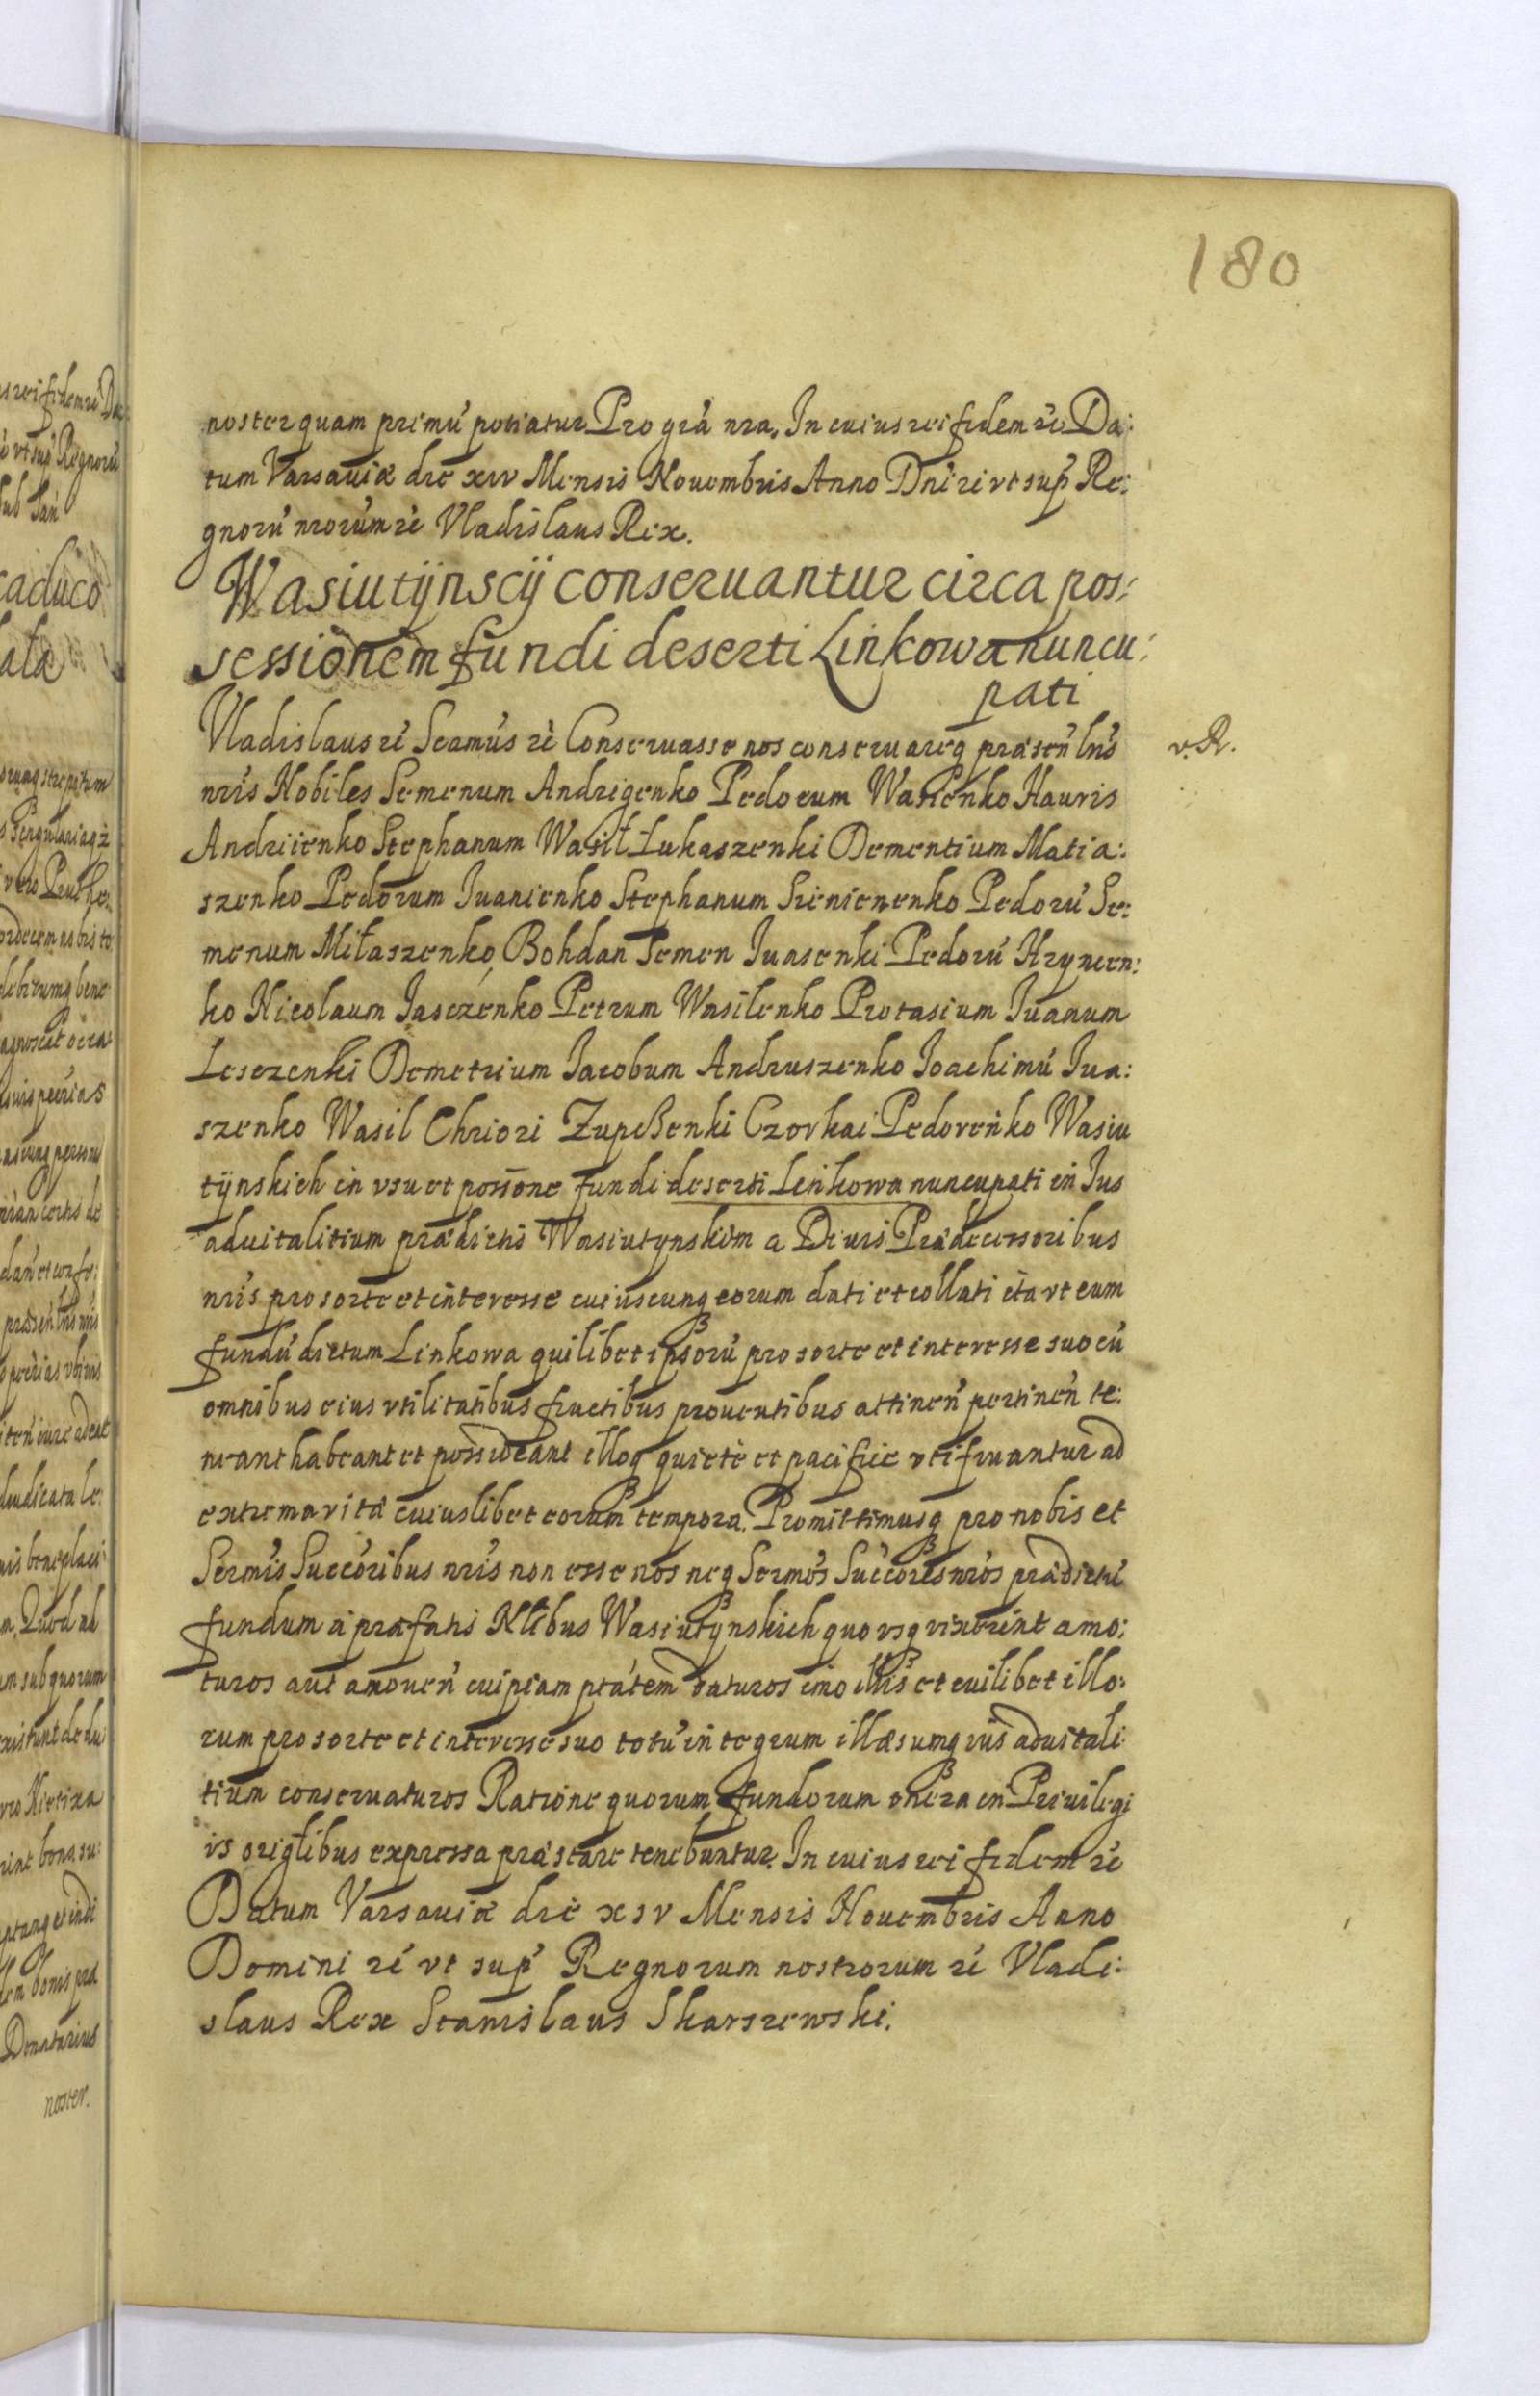 180
noster quam primú potiatur Pro grá nra, In cuius rei fidem rć Da:
tum Varsauiæ die xiv Mensis Nouembris Anno Dńi rć vt sup̃ Re:
gnorú nrorum rć Vladislaus Rex.
Wasiutÿnscÿ conseruantur circa pos:
sessionem fundi deserti Linkowa nuncu:
pati
Vladislaus rć Seamús rć Conseruasse nos conseruareq præseń lris
v. R.
nris Nobiles Semenum Andrigenko Pedorum Wasienko Hauris
Andriienko Stephanum Wasil Łukaszenki Dementium Matia:
szenko Pedorum Juanienko Stephanum Sienienenko Pedorú Se:
menum Miłaszenko, Bohdan Semen Juasenki Pedorú Hryneen:
ko Nicolaum Jasczenko Petrum Wasilenko Protasium Juanum
Lesczenki Demetrium Jacobum Andruszenko Joachimú Jua:
szenko Wasil Chriori Zupeßenki Czorkai Pedoreńko Wasiu
tÿnskich in vsu et possone fundi deserti Linkowa nuncupati in Jus
aduitalitium prædictis Wasiutynskim a Diuis Prædecessoribus
nris pro sorte et interesse cuiuscunq eorum dati et collati ita vt eum
fundú dictum Linkowa quilibet ipsorú pro sorte et interesse suo cú
omnibus eius vtilitatibus fructibus prouentibus attineń pertineń te:
neant habeant et possideant illoq quietè et pacificè vti fruantur ad
extrema vitæ cuiuslibet eorum tempora. Promittimusq pro nobis et
Sermis Succoribus nris non esse nos neq Sermos Succores nros prædictú
fundum à præfatis Nlibus Wasiutynskich quo vsq vixerint amo:
turos aut amoueń cuipiam ptátem daturos imo illis et cuilibet illo:
rum pro sorte et interesse suo totú integrum illæsumq ius aduitali
tium conseruaturos Ratione quorum fundorum onera in Priuilegi
is origlibus expressa præstare tenebuntur. In cuius rei fidem rć
Datum Varsauiæ die xiv Mensis Nouembris Anno
Domini rć vt sup̃ Regnorum nostrorum rć Vladi:
slaus Rex Stanislaus Skarszewski.